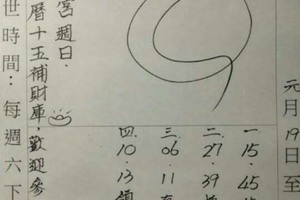 元月19日至
一.15.45
二.27.39
三.06.11
四.10.13.領
宮週日.
曆十五補財庫.歡迎參
世時間:每週六下